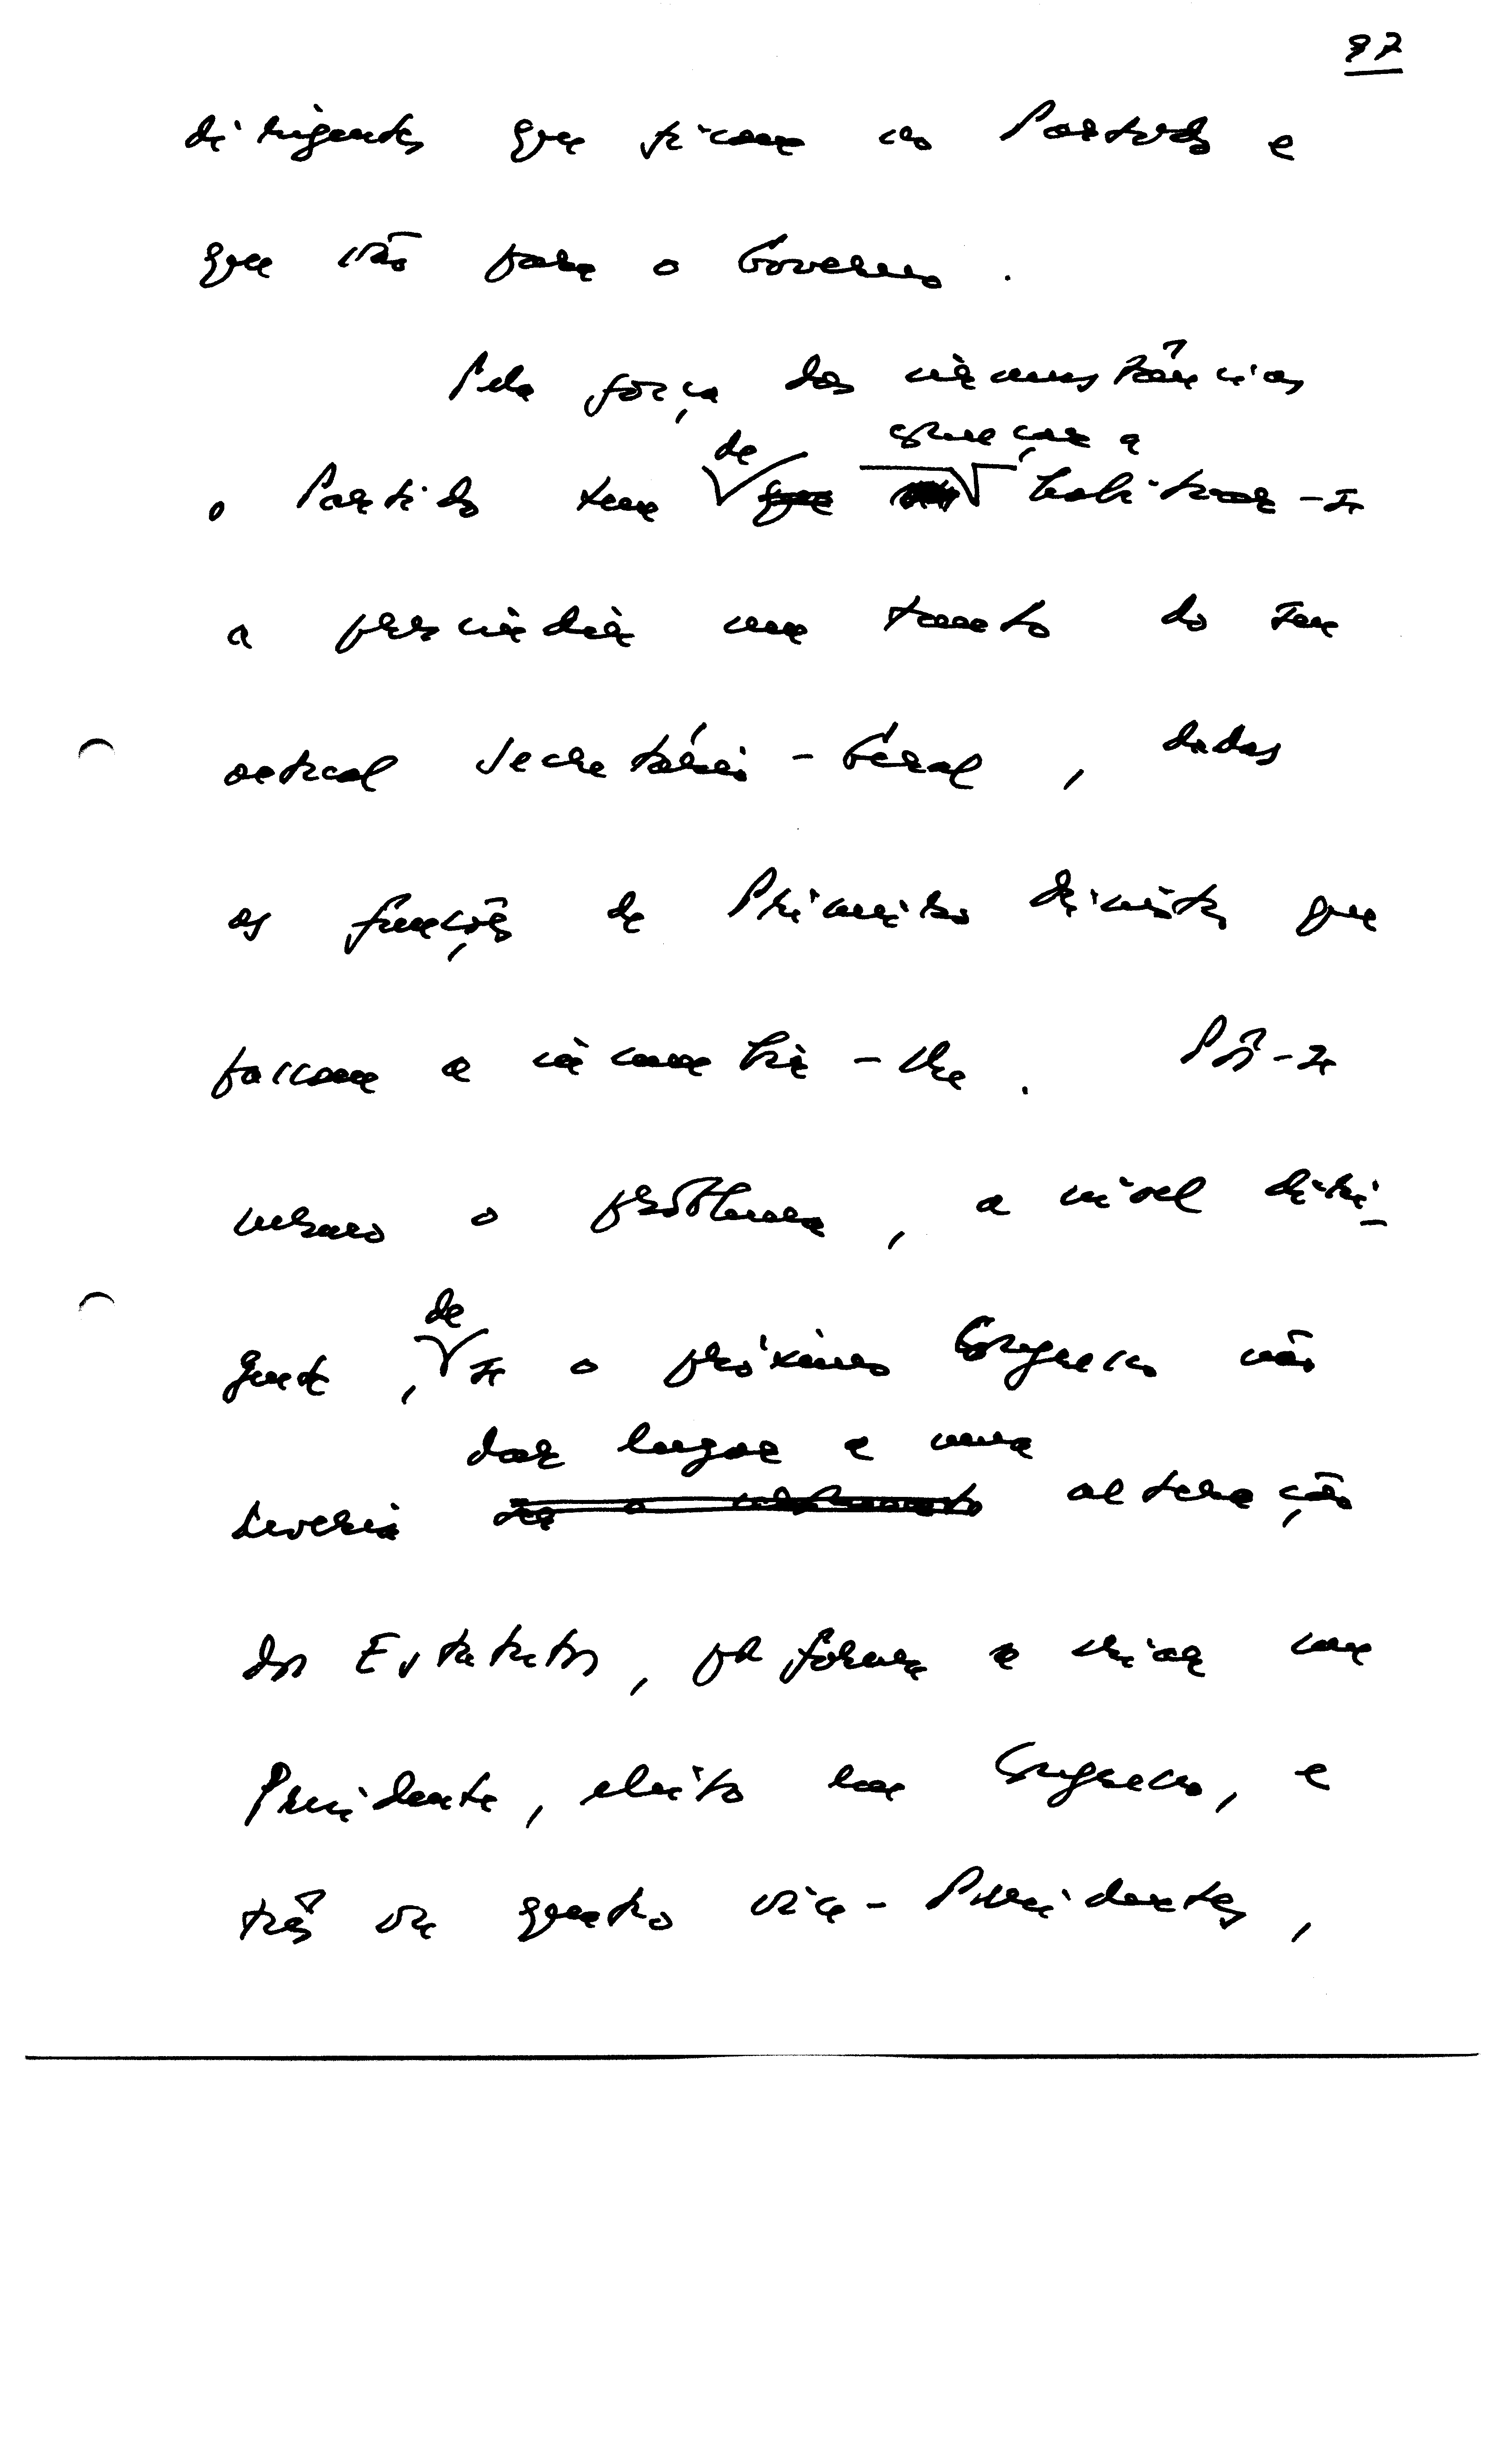 97
dirigentes que ficam no Partido e
que vão para o Governo.
Pela força das circunstâncias
de começar a
o Partido tem que habituar-se
a prescindir um tanto do seu
actual Secretário-Geral, dadas
as funções de Primeiro Ministro que
passam a incumbir-lhe. Põe-se
mesmo o problema, a nível diri-
de
gente, se o próximo Congresso não
dar lugar a uma
deveria alteração
dos Estatutos, por forma a criar um
Presidente, eleito em Congresso, e
três ou quatro vice-Presidentes,